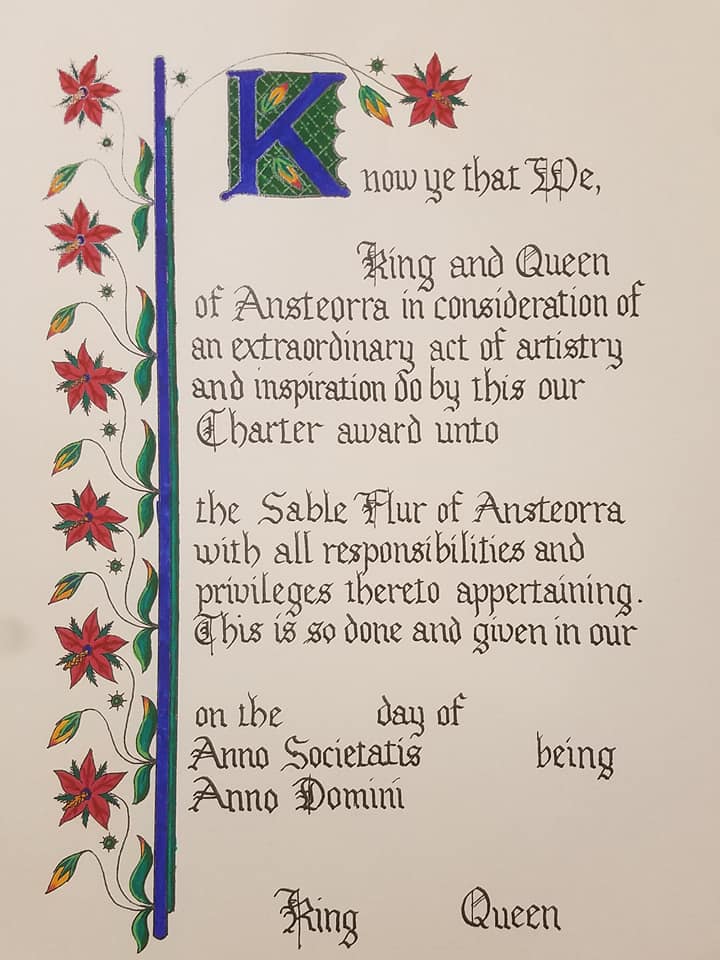 Know ye that We,
King and Queen
of Ansteorra in consideration of
an extraordinary act of artistry
and inspiration do by this our
Charter award unto
the Sable Flur of Ansteorra
with all responsibilities and
privileges thereto appertaining.
This is so done and given in our
on the day of
Anno Societatis being
Anno Domini
King Queen